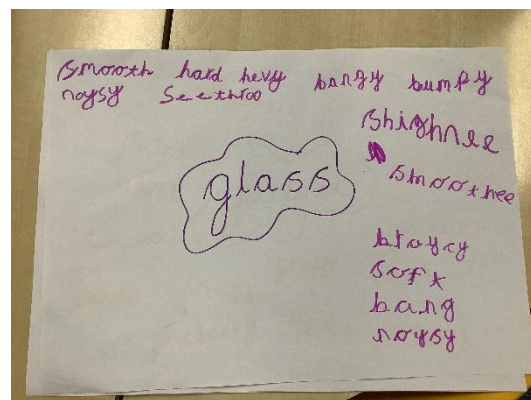 smooth hard hevy bangy bumpy
noysy seethroo
shighnee
glass
smoothee
soft
bang
noysy